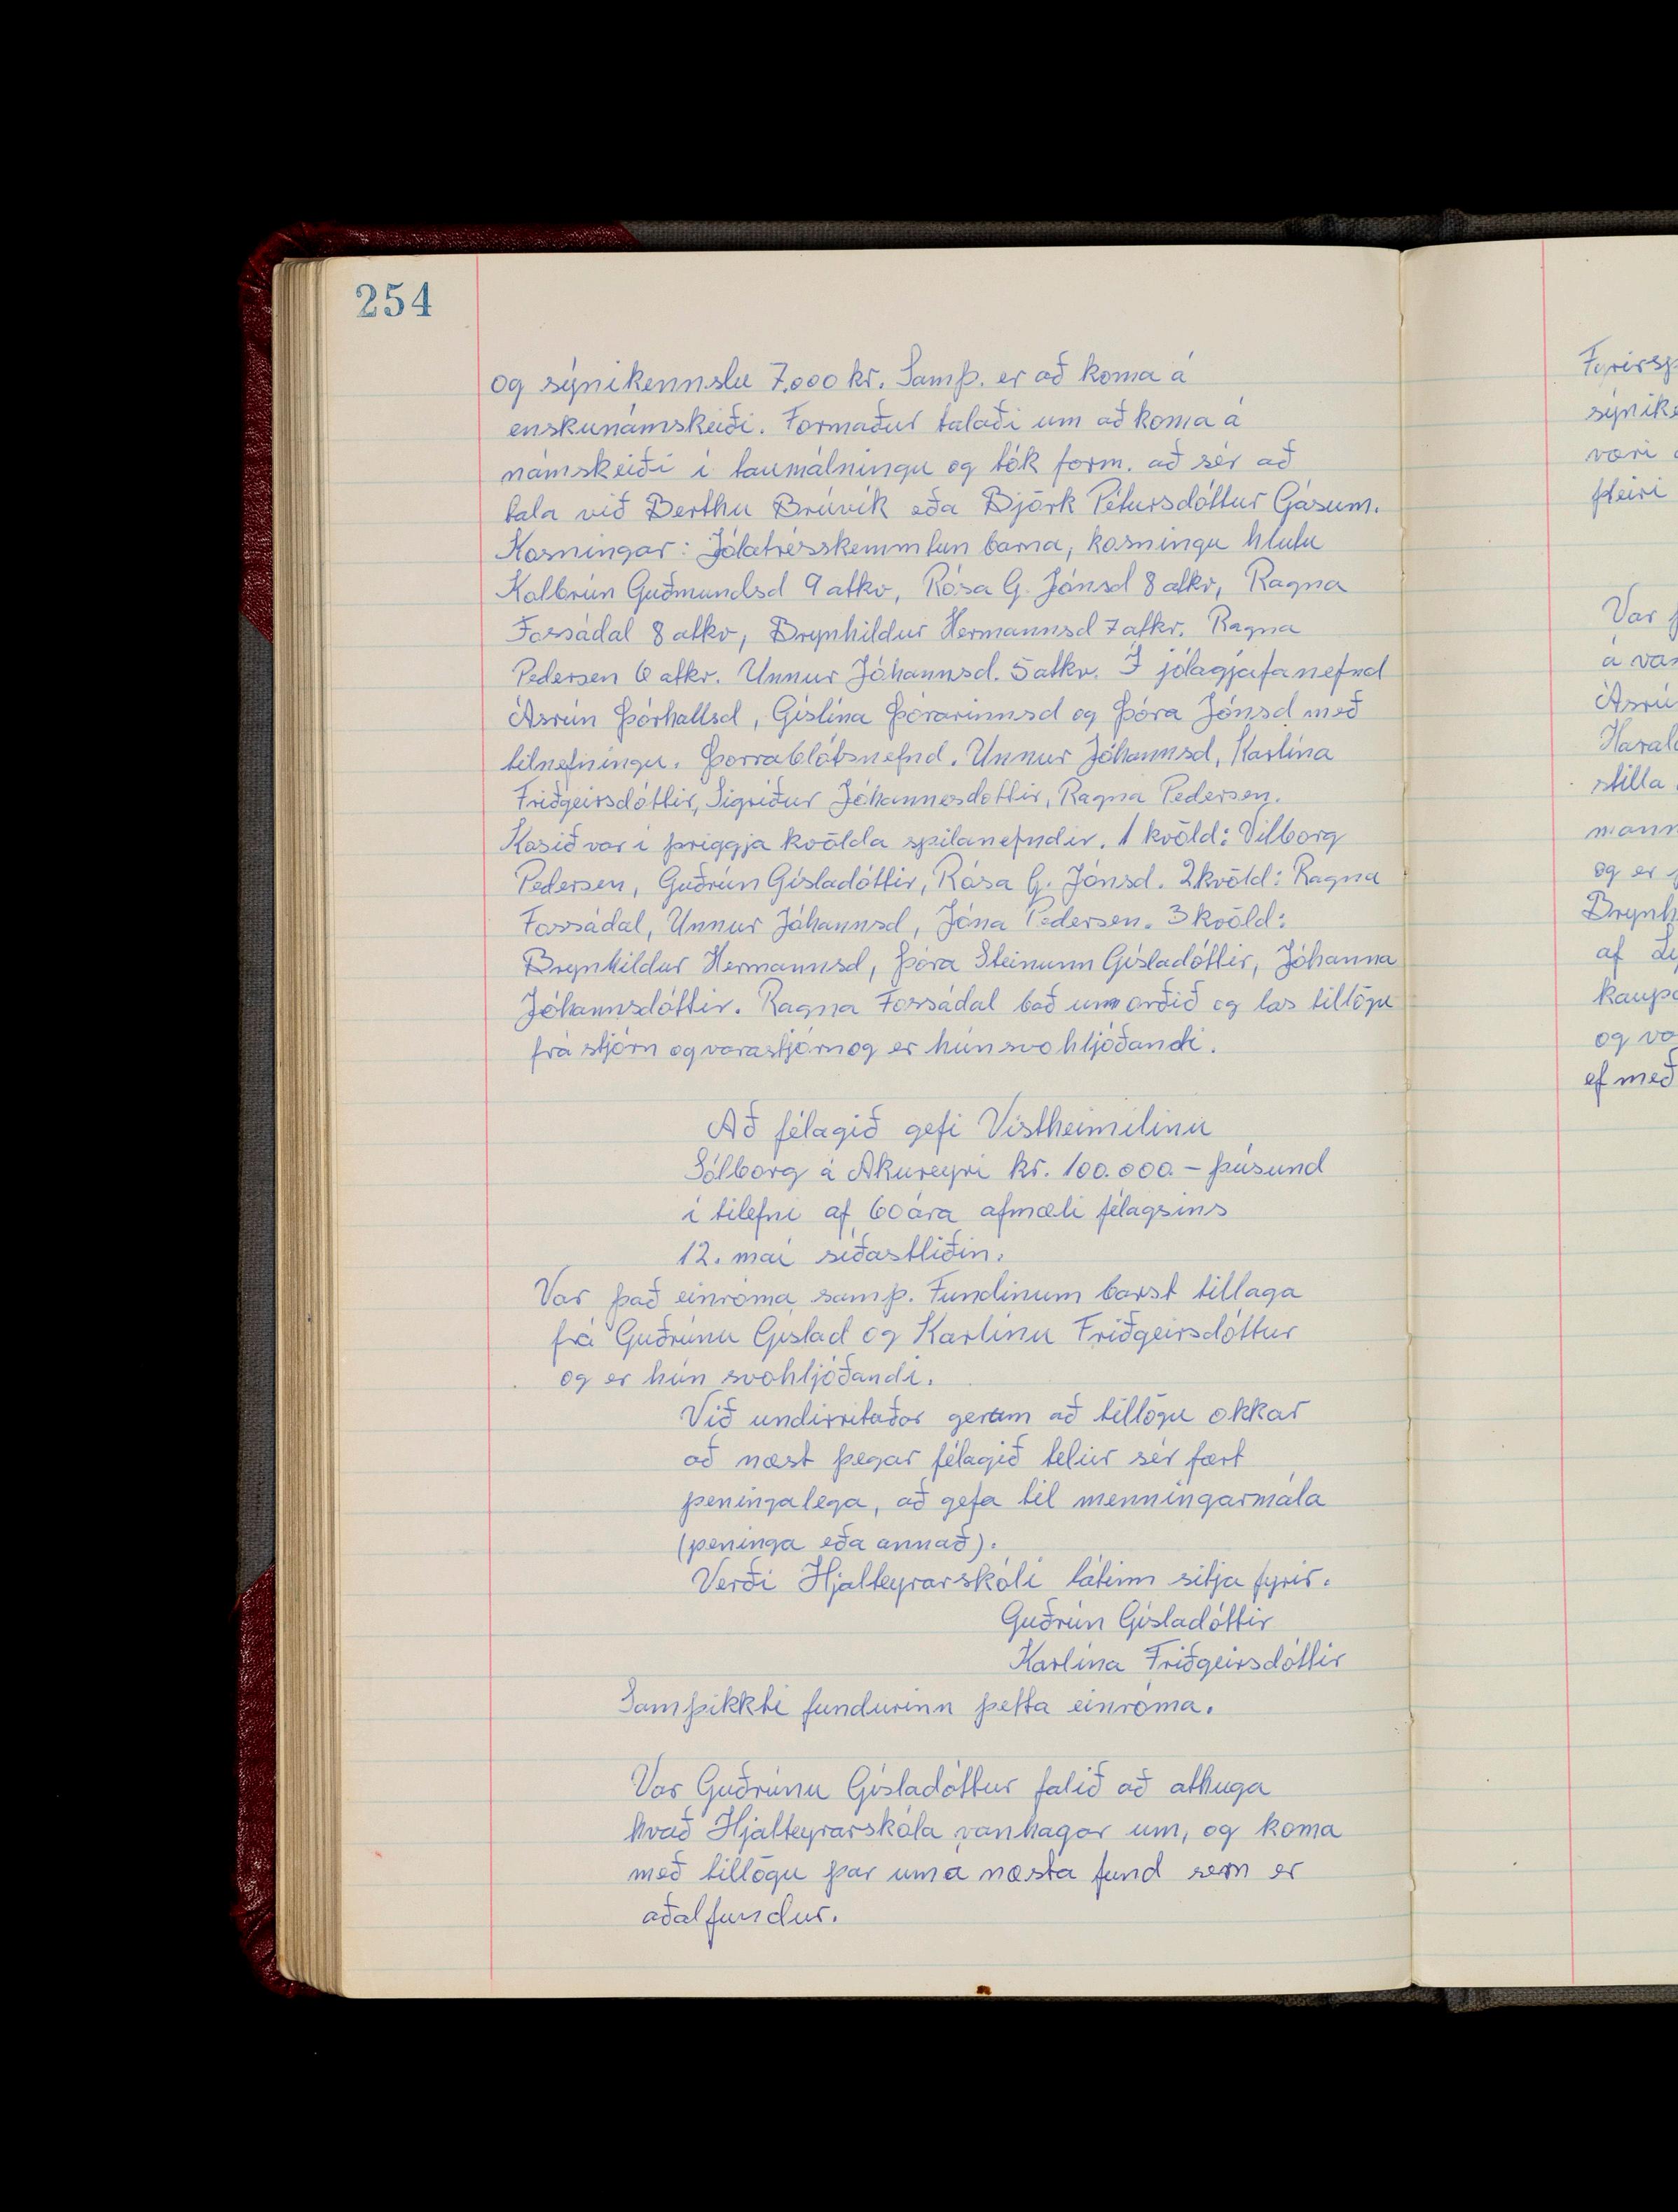 254
og sýnikennslu 7.000 kr. Samþ. er að koma á
enskunámskeiði. Formaður talaði um að koma á
námskeiði í taumálningu og tók form. að sér að
tala við Berthu Brúvik eða Björk Pétursdóttur Gásum.
Kosningar: Jólatrésskemmtun barna, kosningu hlutu
Kolbrún Guðmundsd 9 atkv, Rósa G. Jónsd 8 atkv, Ragna
Fossádal 8 atkv, Brynhildur Hermannsd 7 atkv. Ragna
Pedersen 6 atkv. Unnur Jóhannsd. 5 atkv. Í jólagjafanefnd
Ásrún Þórhallsd, Gíslína Þórarinnsd og Þóra Jónsd með
tilnefningu. Þorrablótsnefnd. Unnur Jóhannsd, Karlína
Friðgeirsdóttir, Sigríður Jóhannesdottir, Ragna Pedersen.
Kosið var í þriggja kvölda spilanefndir. 1 kvöld: Vilborg
Pedersen, Guðrún Gísladóttir, Rósa G. Jónsd. 2 kvöld: Ragna
Fossádal, Unnur Jóhannsd, Jóna Pedersen. 3 kvöld:
Brynhildur Hermannsd, Þóra Steinunn Gísladóttir, Jóhanna
Jóhannsdóttir. Ragna Fossádal bað um orðið og las tillögu
frá stjórn og varastjórn og er hún svohljóðandi.
Að félagið gefi Vistheimilinu
Sólborg á Akureyri kr. 100.000.- þúsund
í tilefni af 60 ára afmæli félagsins
12. maí síðastliðin.
Var það einróma samþ. Fundinum barst tillaga
frá Guðrúnu Gíslad og Karlínu Friðgeirsdóttur
og er hún svohljóðandi.
Við undirritaðar gerum að tillögu okkar
að næst þegar félagið telur sér fært
peningalega, að gefa til menningarmála
(peninga eða annað).
Verði Hjalteyrarskóli látinn sitja fyrir.
Guðrún Gísladóttir
Karlína Friðgeirsdóttir
Samþikkti fundurinn þetta einróma.
Var Guðrúnu Gísladóttur falið að athuga
hvað Hjalteyrarskóla vanhagar um, og koma
með tillögu þar um á næsta fund sem er
aðalfundur.
væri
fleiri
Var
á
stilla
og er
af
og
ef með